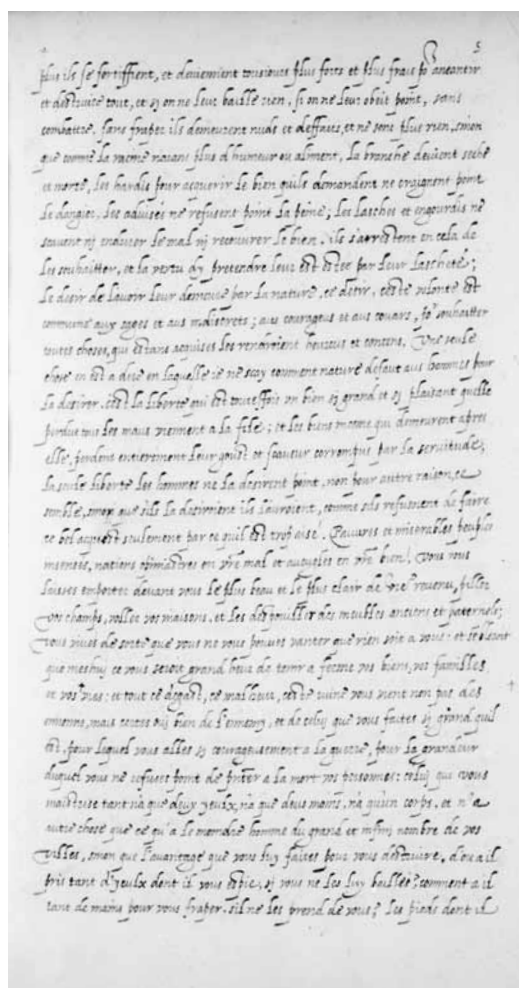 5
plus ils se fortiffient, et deviennent tousiours plus forts et plus frais po^r aneantir
et destruire tout, et si on ne leur baille rien, si on ne leur obeit point, sans
combattre, sans fraper ils demeurent nuds et deffaits, et ne sont plus rien, sinon
que comme la racine naiant plus d humeur ou aliment, la branche devient seche
et morte, les hardis pour acquerir le bien quils demandent ne craignent point
le dangier, les advisés ne refusent point la peine; les lasches et engourdis ne
scavent ni endurer le mal ni recouvrer le bien. ils s'arrestent en cela de
les souhaitter, et la vertu dy pretendre leur est ostee par leur lascheté;
le desir de lavoir leur demeure par la nature, ce desir, ceste volonté est
commune aux sages et aus indiscrets; aus courageus et aus couars, po^r souhaitter
toutes choses, qui estans acquises les rendroient heureus et contens. Une seule
chose en est a dire en laquelle ie ne scay comment nature defaut aus hommes pour
la desirer. c'est la liberté qui est toutesfois un bien si grand et si plaisant quelle
perdue tous les maus viennent a la file; et les biens mesme qui demeurent apres
elle, perdent entierement leur goust et scaveur corrompus par la servitude;
la seule liberté les hommes ne la desirent point, non pour autre raison, ce
semble, sinon que sils la desiroient ils l'auroient, comme sils refusoient de faire
ce bel acquest seulement par ce quil est trop aisé. Pauvres et miserables peuples
insensés, nations opiniastres en v^re mal et aveugles en v^re bien! vous vous
laissés emporter devant vous le plus beau et le plus clair de v^re revenu, piller
vos champs, voller vos maisons, et les despouiller des meubles anciens et paternels;
vous vivés de sorte que vous ne vous pouvés vanter que rien soit a vous: et sembleroit
que meshui ce vous seroit grand heur de tenir a ferme vos biens, vos familles
et vos vies: et tout ce degast, ce malheur, ceste ruine vous vient non pas des
ennemis, mais certes oui bien de l'ennemy, et de celui que vous faites si grand quil
est, pour lequel vous allés si courageusement a la guerre, pour la grandeur
duquel vous ne refusés point de présenter a la mort vos personnes: celui qui vous
maistrise tant nà que deus yeulx, nà que deus mains, nà qu'un corps, et n'a
autre chose que ce qu'a le moindre homme du grand et infini nombre de vos
villes, sinon que l'avantage que vous luy faites pour vous destruire, d'ou a il
pris tant d'yeulx dont il vous espie, si vous ne les luy baillés? comment a il
tant de mains pour vous fraper, sil ne les prend de vous? Les pieds dont il